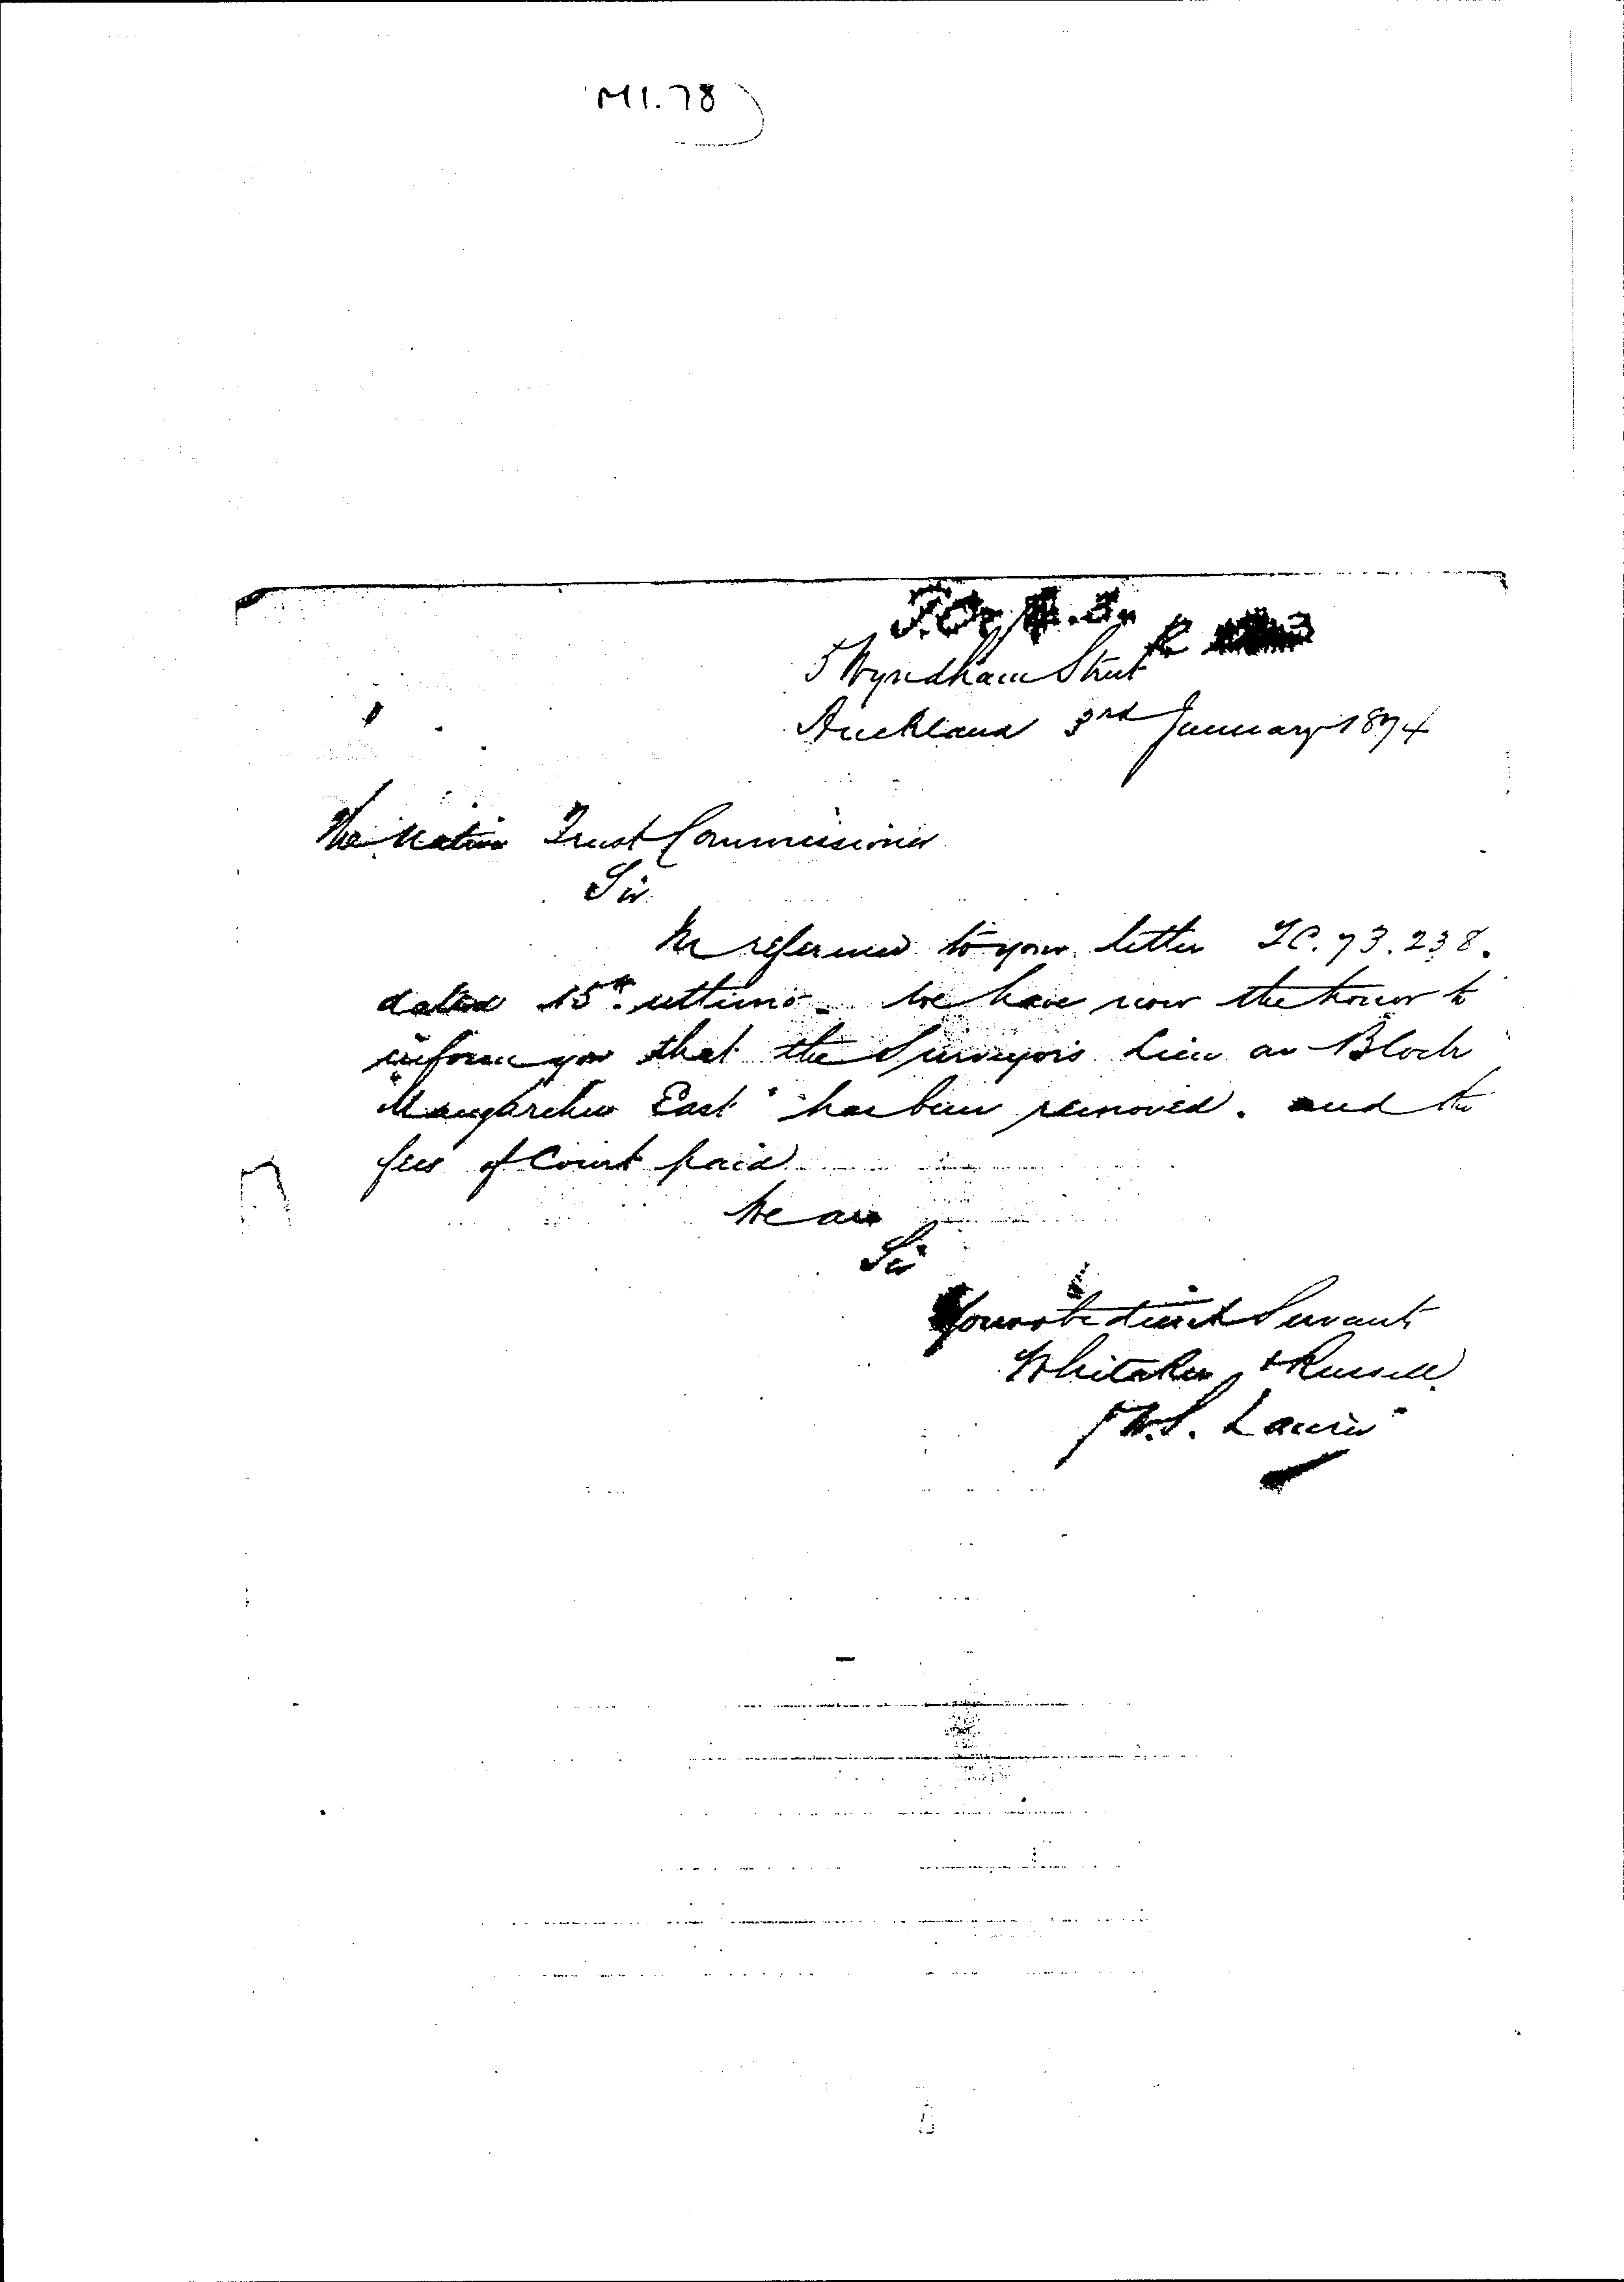 M1.78
5 Wyndham Street
Auckland 3rd January 1874
The Native Trust Commissioner
Sir
In reference to your letter TC.73.238.
dated 15th ultimo - we have now the honor to
inform you that the Surveyor's Lien on Block
East" has been removed. and the
fees of Court paid
We are
Sir
Your obedient Servants
Whitaker & Russell
W.S. Laurie